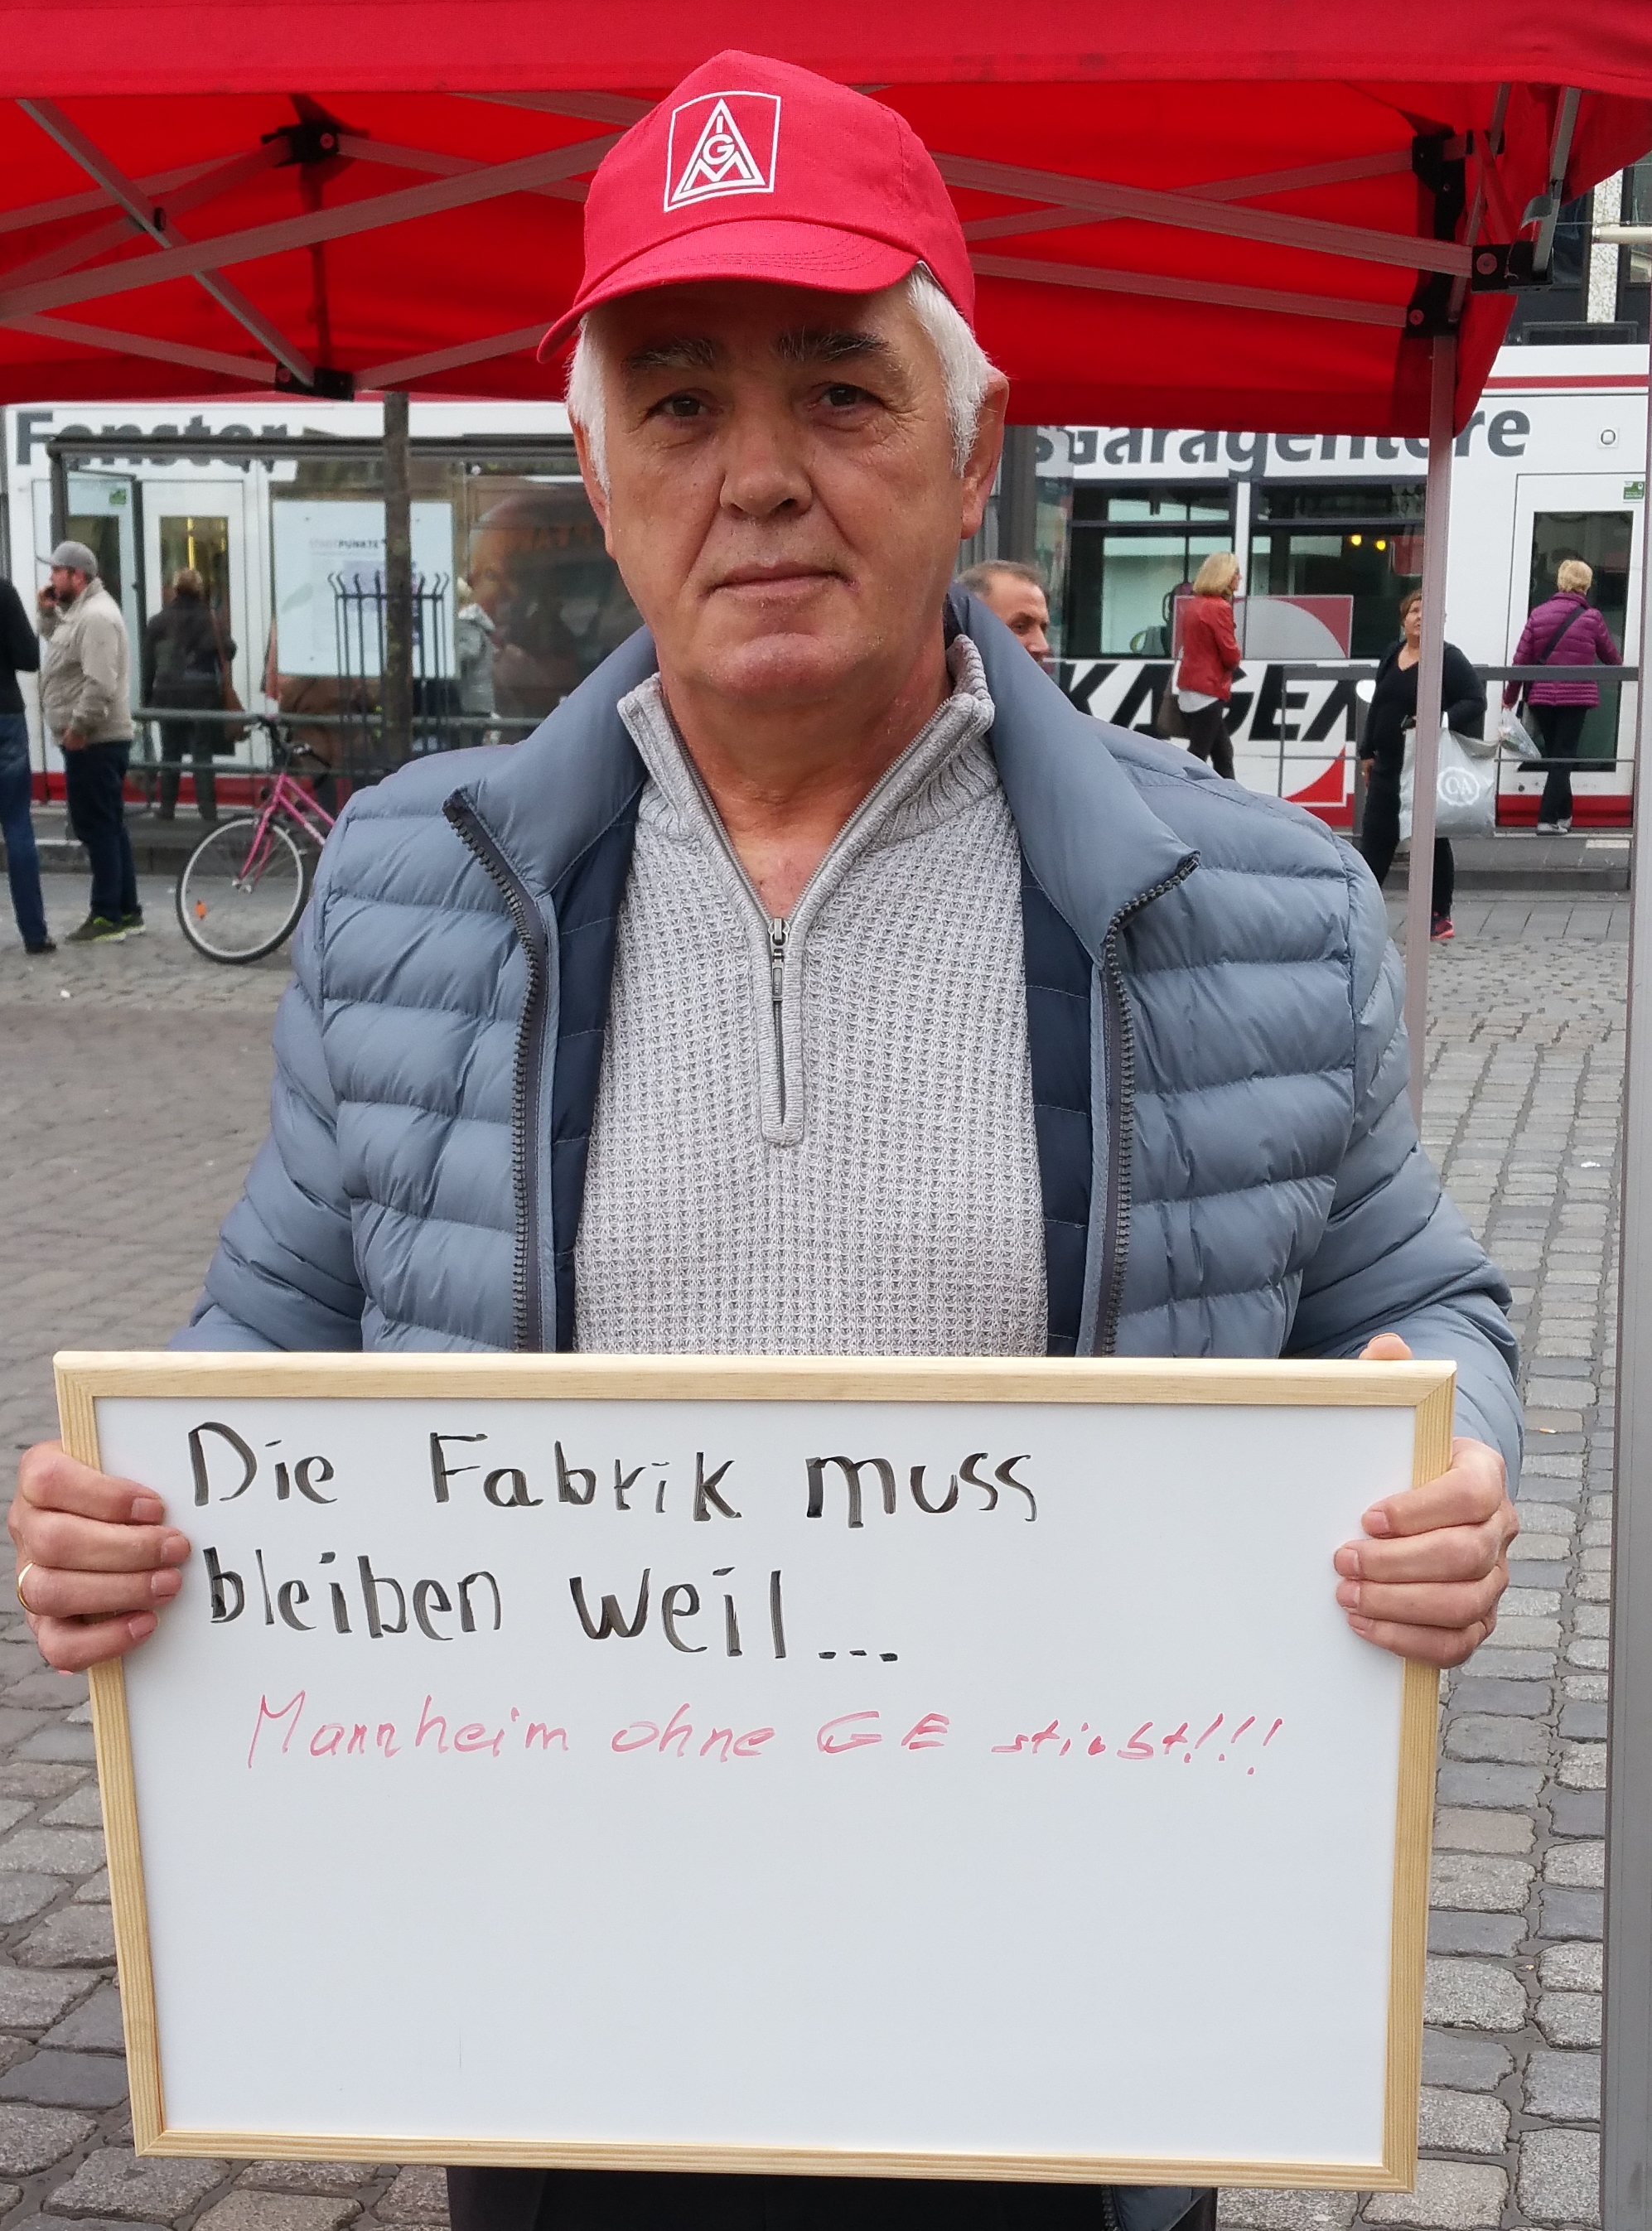 IGM
Fenster
Garagentore
Die Fabrik muss
bleiben weil...
Mannheim ohne GE stirbt!!!